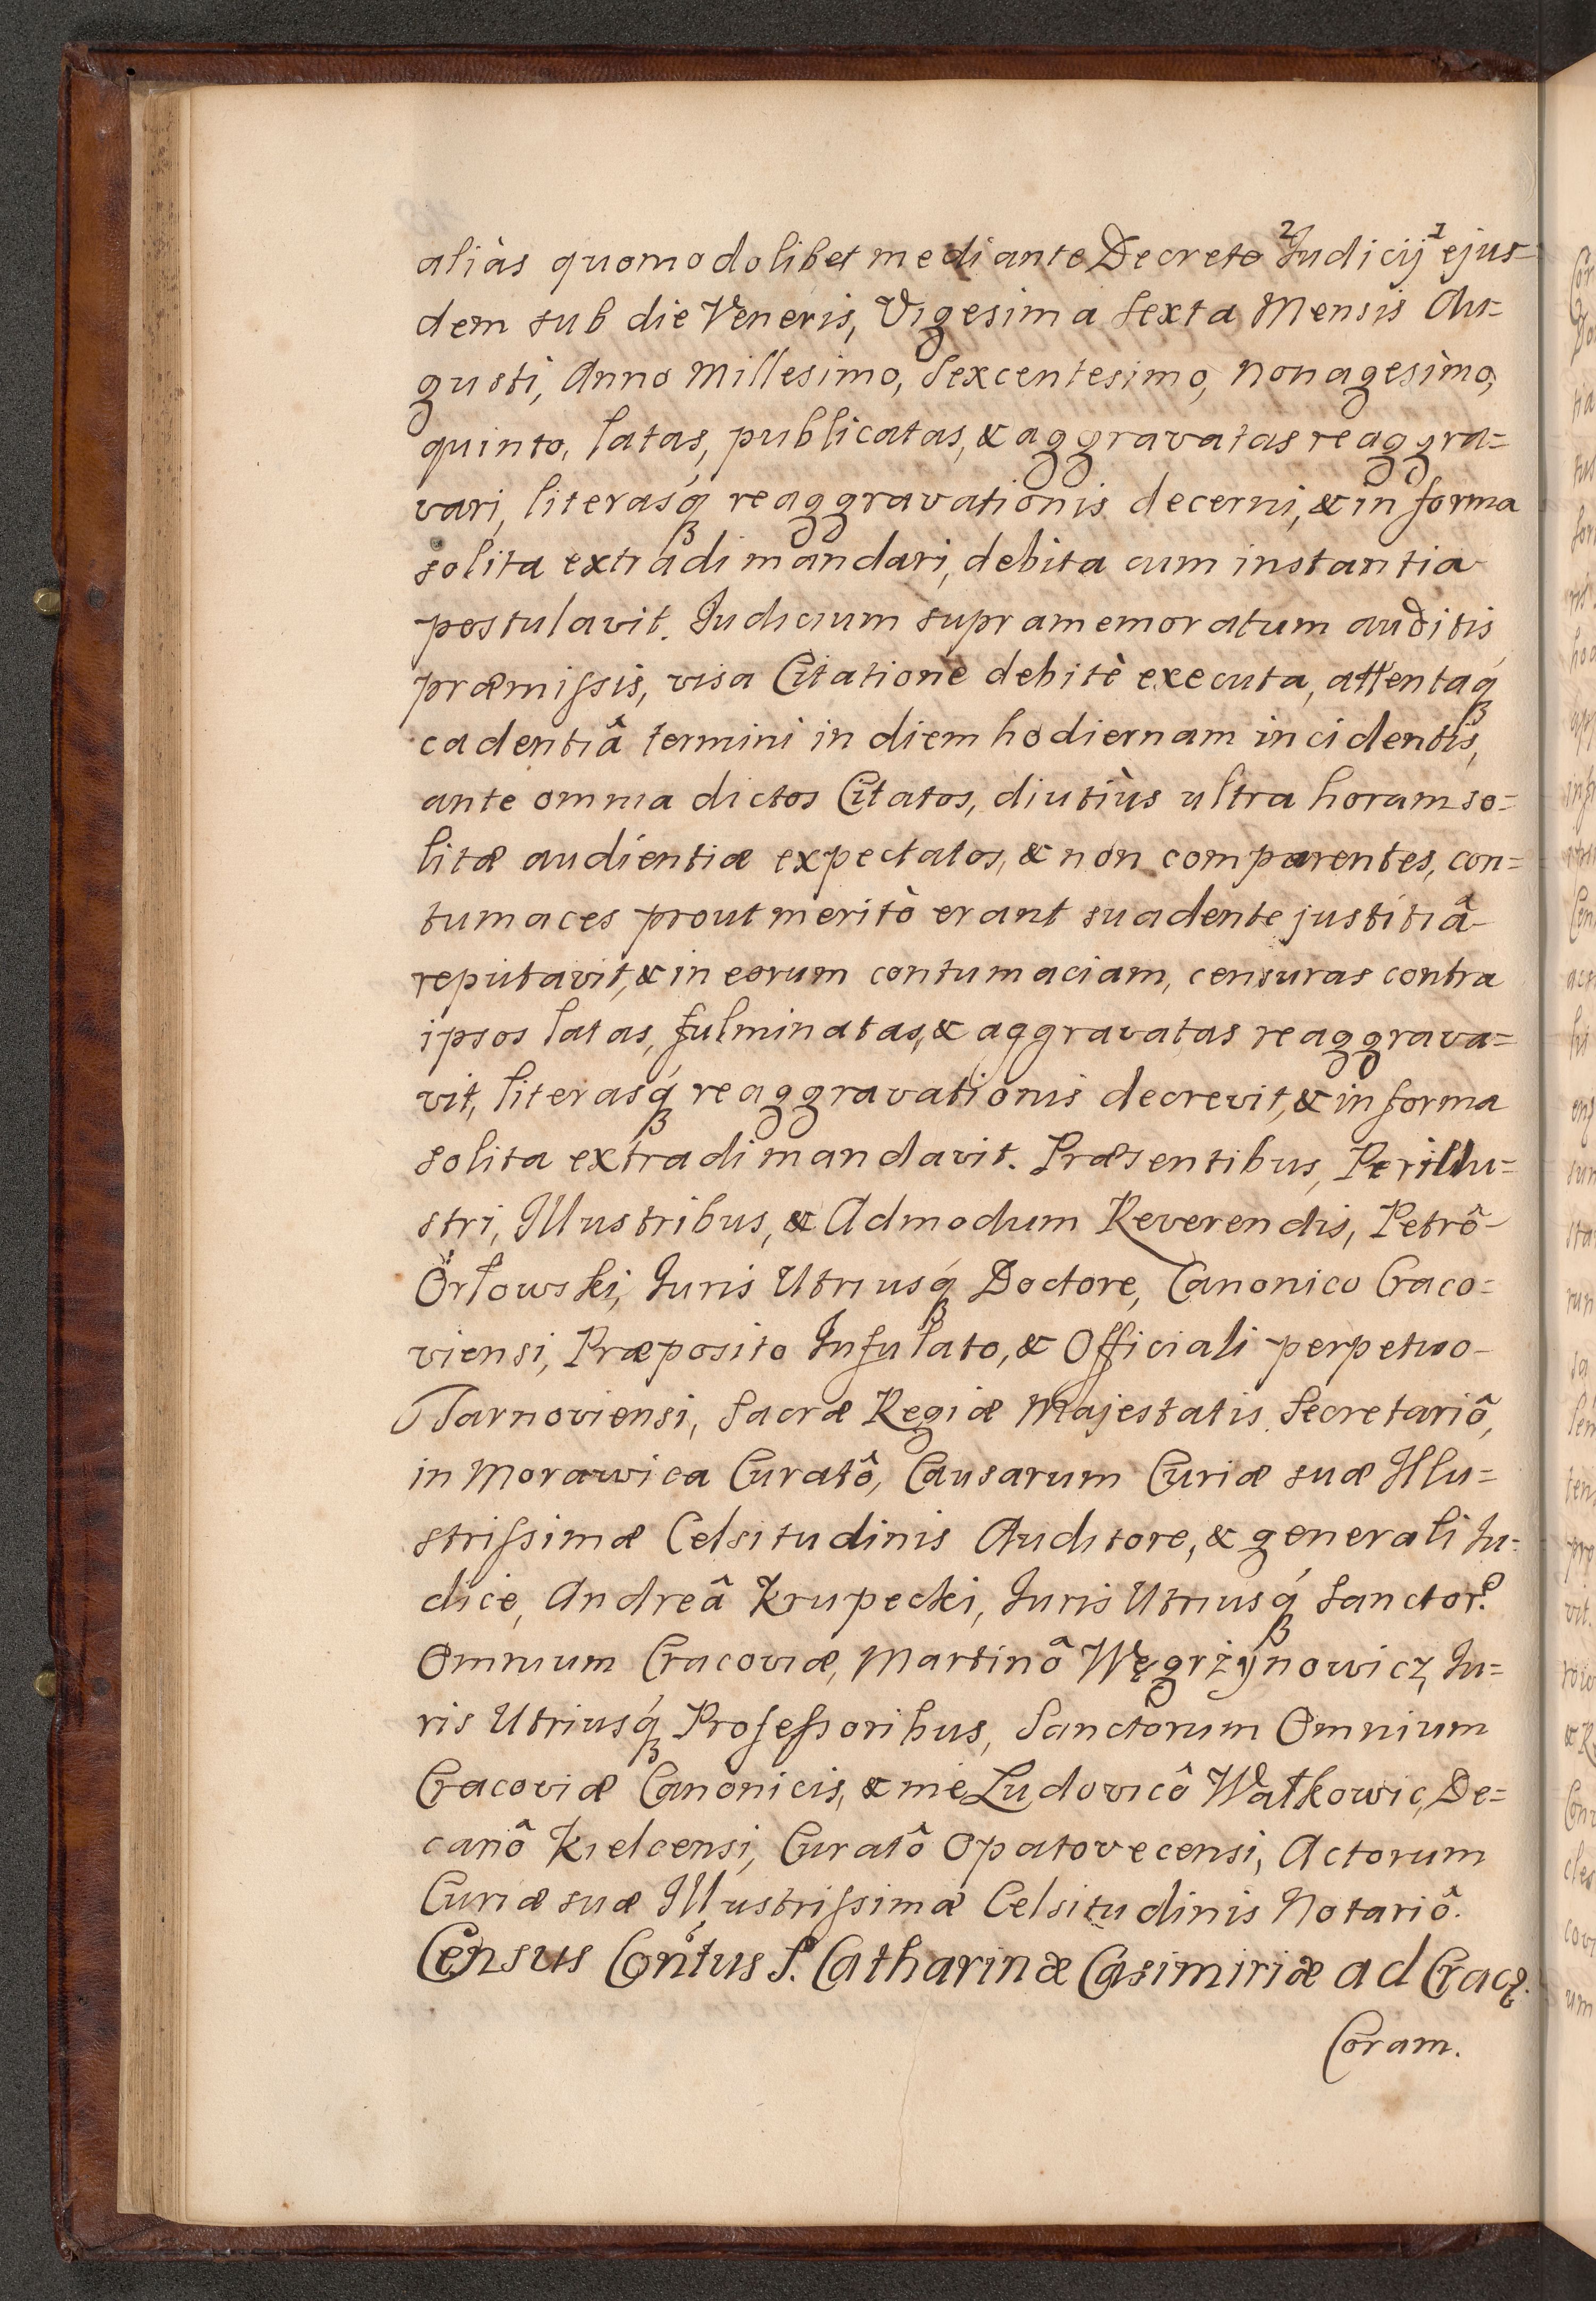 aliàs quomodolibet mediante Decreto ²Judicij ¹ejus=
dem sub die Veneris, Vigesima Sexta Mensis Au=
gusti, Anno Millesimo, Sexcentesimo, Nonagesimo,
quinto, latas, publicatas, & aggravatas reaggra=
vari, literasq́ꝫ reaggravationis decerni, & in forma
solita extradi mandari, debita cum instantia
postulavit. Judicium supramemoratum auditis
præmissis, visa Citatione debitè executa, attentaq́ꝫ
cadentiâ termini in diem hodiernam incidentis,
ante omnia dictos Citatos, diutiùs ultra horam so=
litæ audientiæ expectatos, & non comparentes, con=
tumaces prout meritò erant suadente justitiâ
reputavit, & in eorum contumaciam, censuras contra
ipsos latas, fulminatas, & aggravatas reaggrava=
vit, literasq́ꝫ reaggravationis decrevit, & in forma
solita extradi mandavit. Præsentibus, Perillu=
stri, Illustribus, & Admodum Reverendis, Petrô
Orłowski, Juris Utriusq́ꝫ Doctore, Canonico Craco=
viensi, Præposito Infulato, & Officiali perpetuo
Tarnoviensi, Sacræ Regiæ Majestatis Secretariô,
in Morawica Curatô, Causarum Curiæ suæ Illu=
strissimæ Celsitudinis Auditore, & generali Ju=
dice, Andreâ Krupecki, Juris Utriusq́ꝫ Sanctor.
Omnium Cracoviæ, Martinô Węgrżynowicz, Ju=
ris Utriusq́ꝫ Professoribus, Sanctorum Omnium
Cracoviæ Canonicis, & me Ludovicô Wałkowic, De=
canô Kielcensi, Curatô Opatovecensi, Actorum
Curiæ suæ Illustrissimæ Celsitudinis Notariô.
Census Contus S. Catharinæ Casimiriæ ad Crac.
Coram.